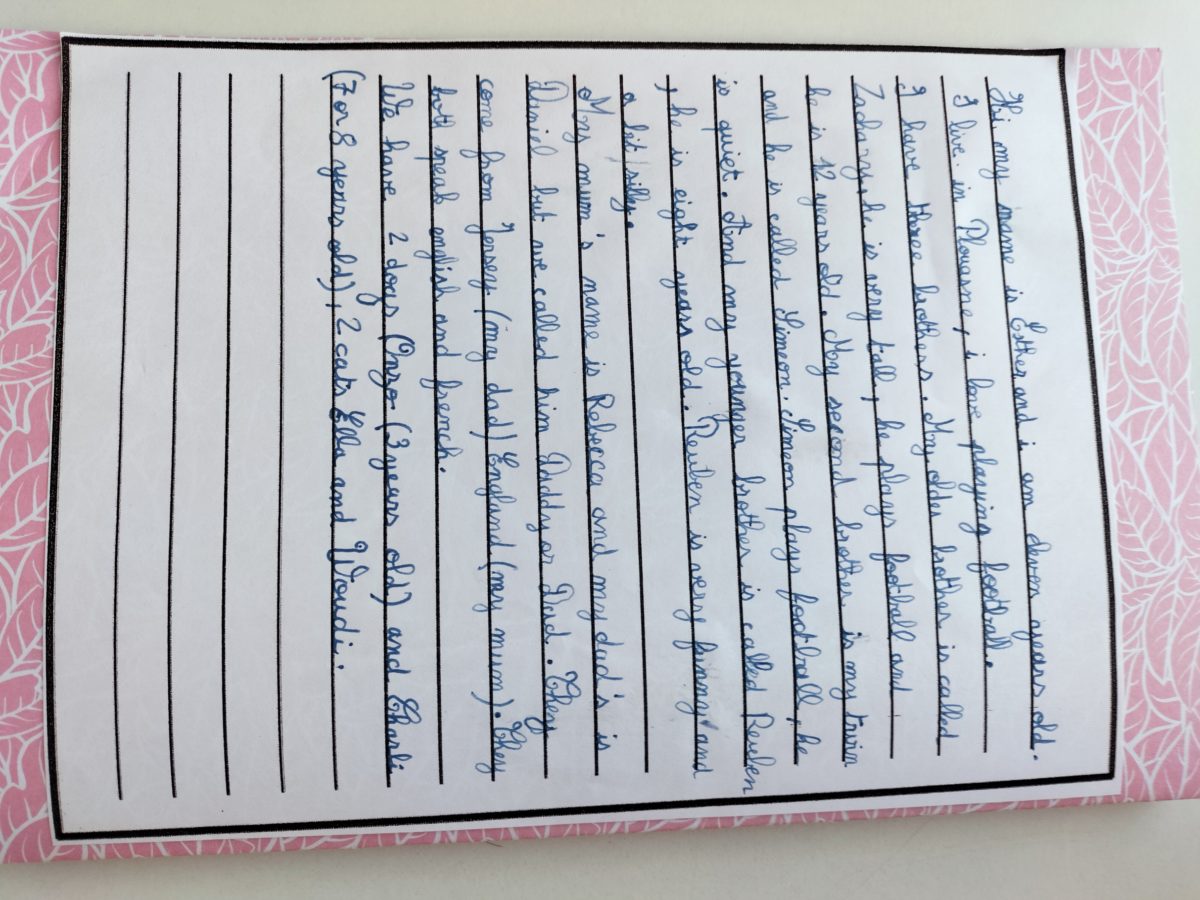 Hi my name is Esther and i am eleven years old.
I live in Plouasne, i love playing football.
I have three brothers. My older brother is called
Zachary, he is very tall, he plays football and
he is 12 years old. My second brother is my twin
and he is called Simeon. Simeon plays football, he
is quiet. And my younger brother is called Reuben
, he is eight years old. Reuben is very funny and
a bit silly.
My mum's name is Rebecca and my dad's is
Daniel but we called him Daddy or Dad. They
come from Jersey (my dad) England (my mum). They
both speak english and french.
We have 2 dogs Onzo (3 years old) and Charli
(7 or 8 years old), 2 cats Ella and Woudi.